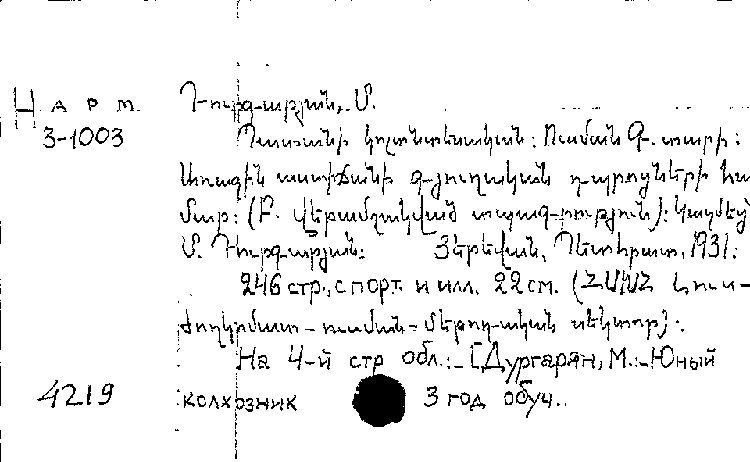 Н А Р М. Դուրգարյան, Մ.
3-1003 Պատանի կոլտնտեսական: Ուսման Գ. տարի:
Առաջին աստիճանի գյուղական դպրոցների հա
մար: (Բ. վերամշակված տպագրություն): Կազմեց
Մ. Դուրգարյան: Յերեվան, Պետհրատ, 1931:
246 стр., с порт. и илл. 22 см. (ՀՍԽՀ Լուս-
ժողկոմատ - ուսման - մեթոդական սեկտոր):
На 4-й стр обл.:-[Дургарян, М.:-Юный
4219 колхозник 3 год обуч..